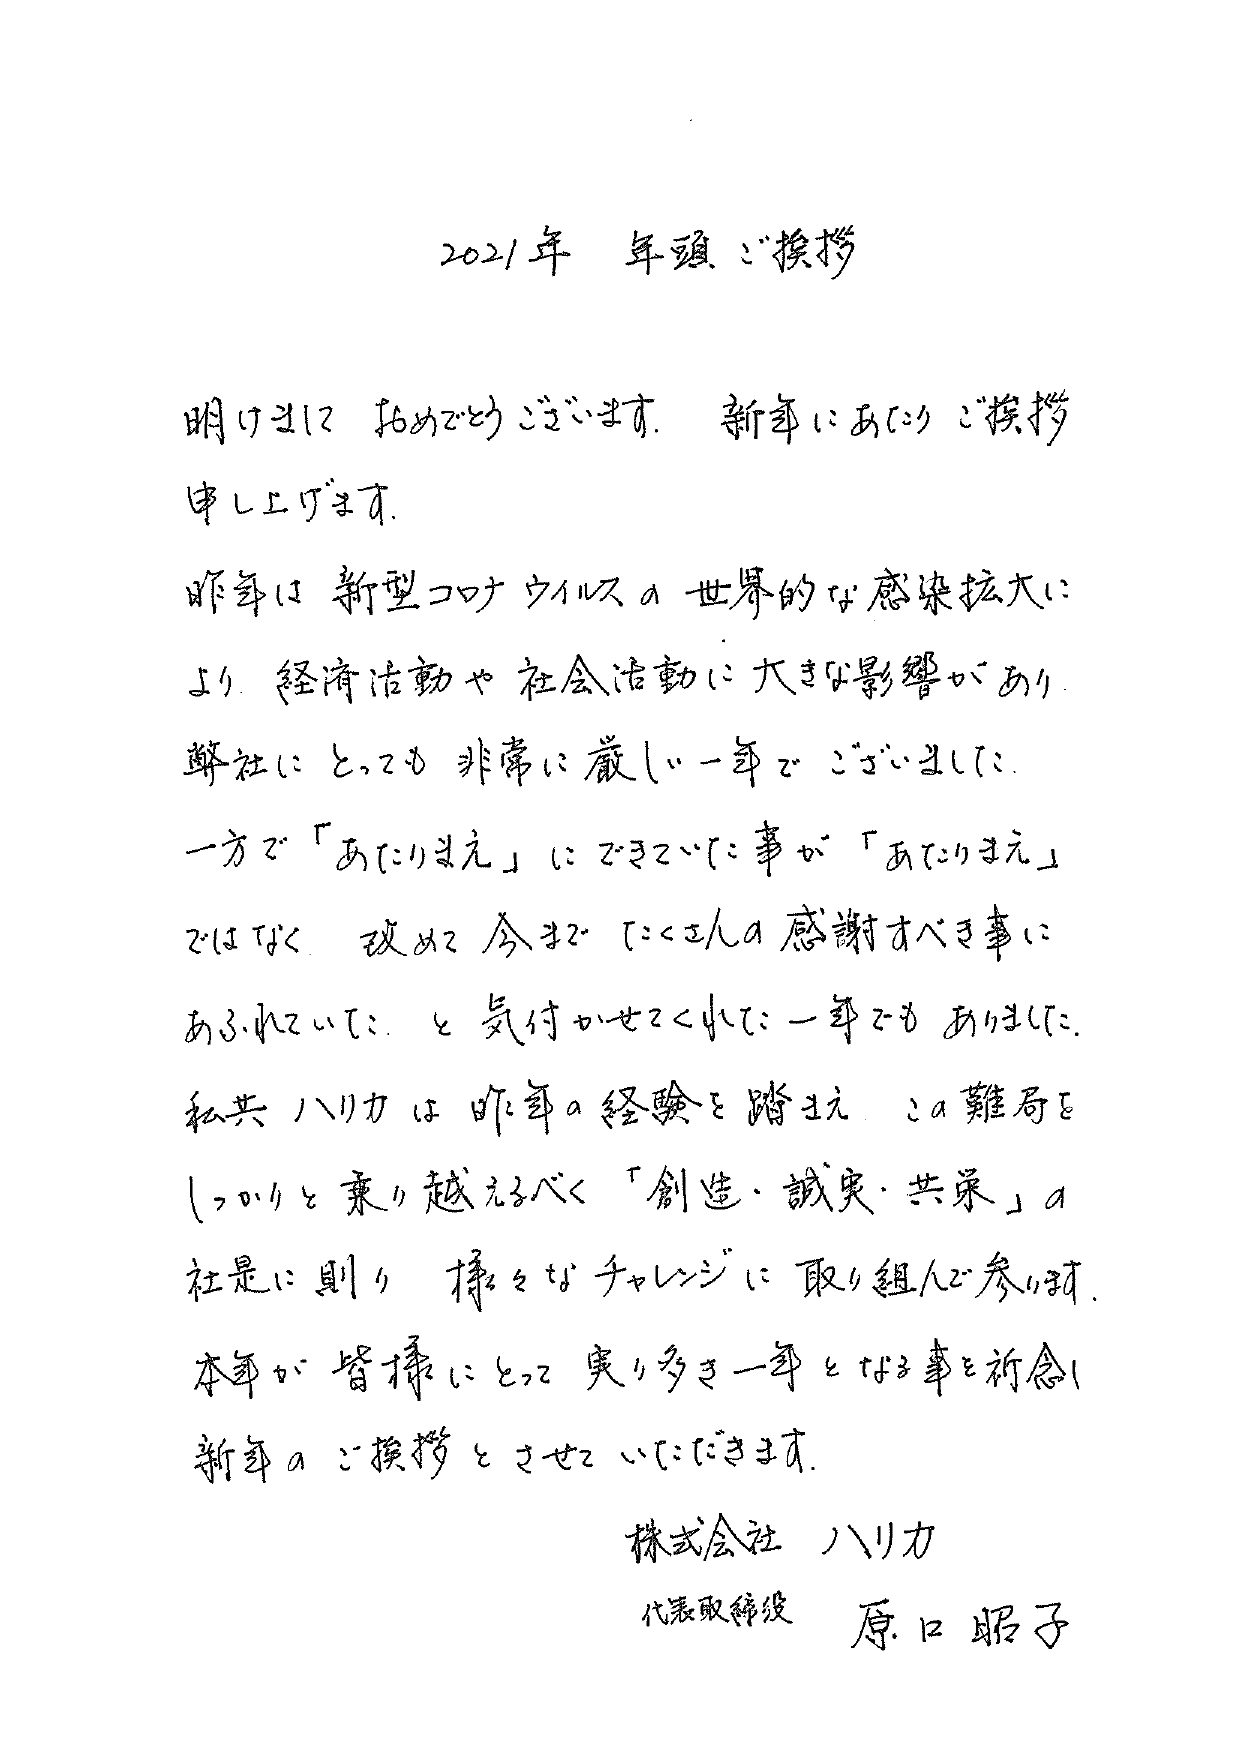 2021年　年頭ご挨拶
明けまして おめでとうございます. 新年にあたり ご挨拶
申し上げます.
昨年は 新型コロナウイルスの 世界的な感染拡大に
より. 経済活動や 社会活動に 大きな影響があり.
弊社に とっても 非常に厳しい一年で ございました.
一方で「あたりまえ」にできていた事が「あたりまえ」
ではなく. 改めて 今まで たくさんの感謝すべき事に
あふれていた. と 気付かせてくれた一年でも ありました.
私共 ハリカは 昨年の経験を踏まえ. この難局を
しっかりと乗り越えるべく「創造・誠実・共栄」の
社是に則り 様々なチャレンジに 取り組んで参ります.
本年が 皆様にとって 実り多き一年となる事を祈念し
新年の ご挨拶と させて いただきます.
株式会社 ハリカ
代表取締役 原口昭子